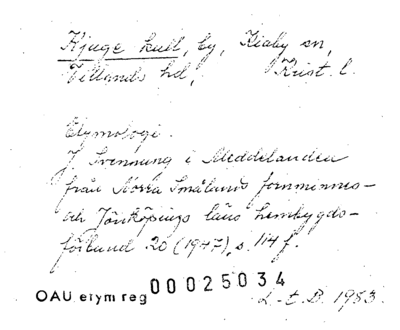 Kjuge kull, by, Kiaby sn,
Villands hd, Krist. l.
Etymologi.
J. Svennung i Meddelanden
från Norra Smålands fornminnes-
och Jönköpings läns hembygds-
förbund 20 (1947), s. 114 f.
OAU etym reg 00025034
L-t. B. 1953.